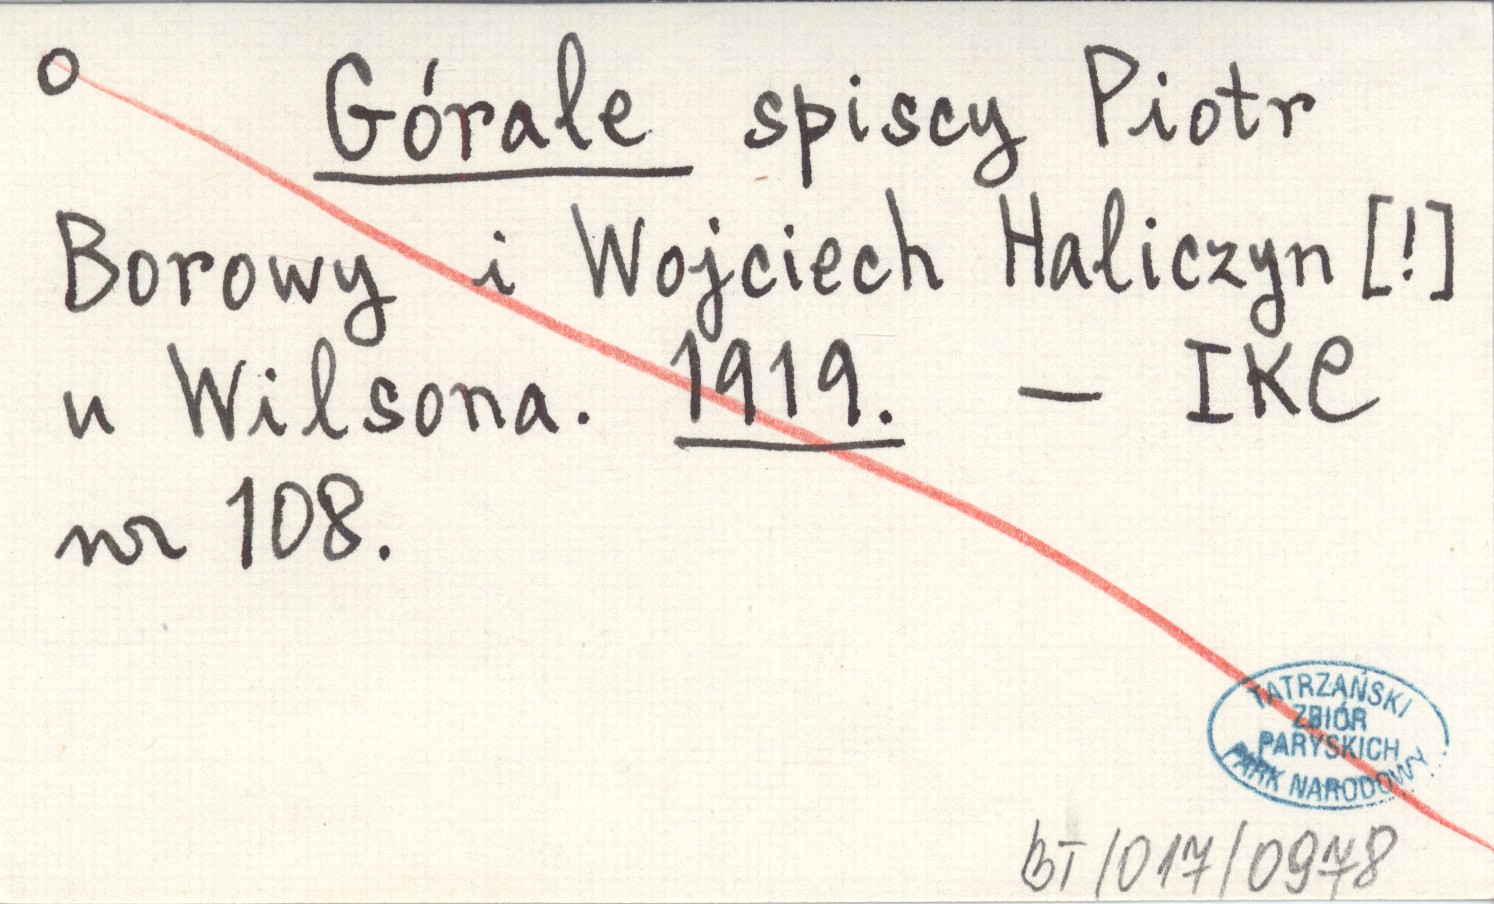 O Górale spiscy Piotr
Borowy i Wojciech Haliczyn [!]
u Wilsona. 1919. — IKC
nr 108.
TATRZAŃSKI
ZBIÓR
PARYSKICH
PARK NARODOWY
BT/017/0978